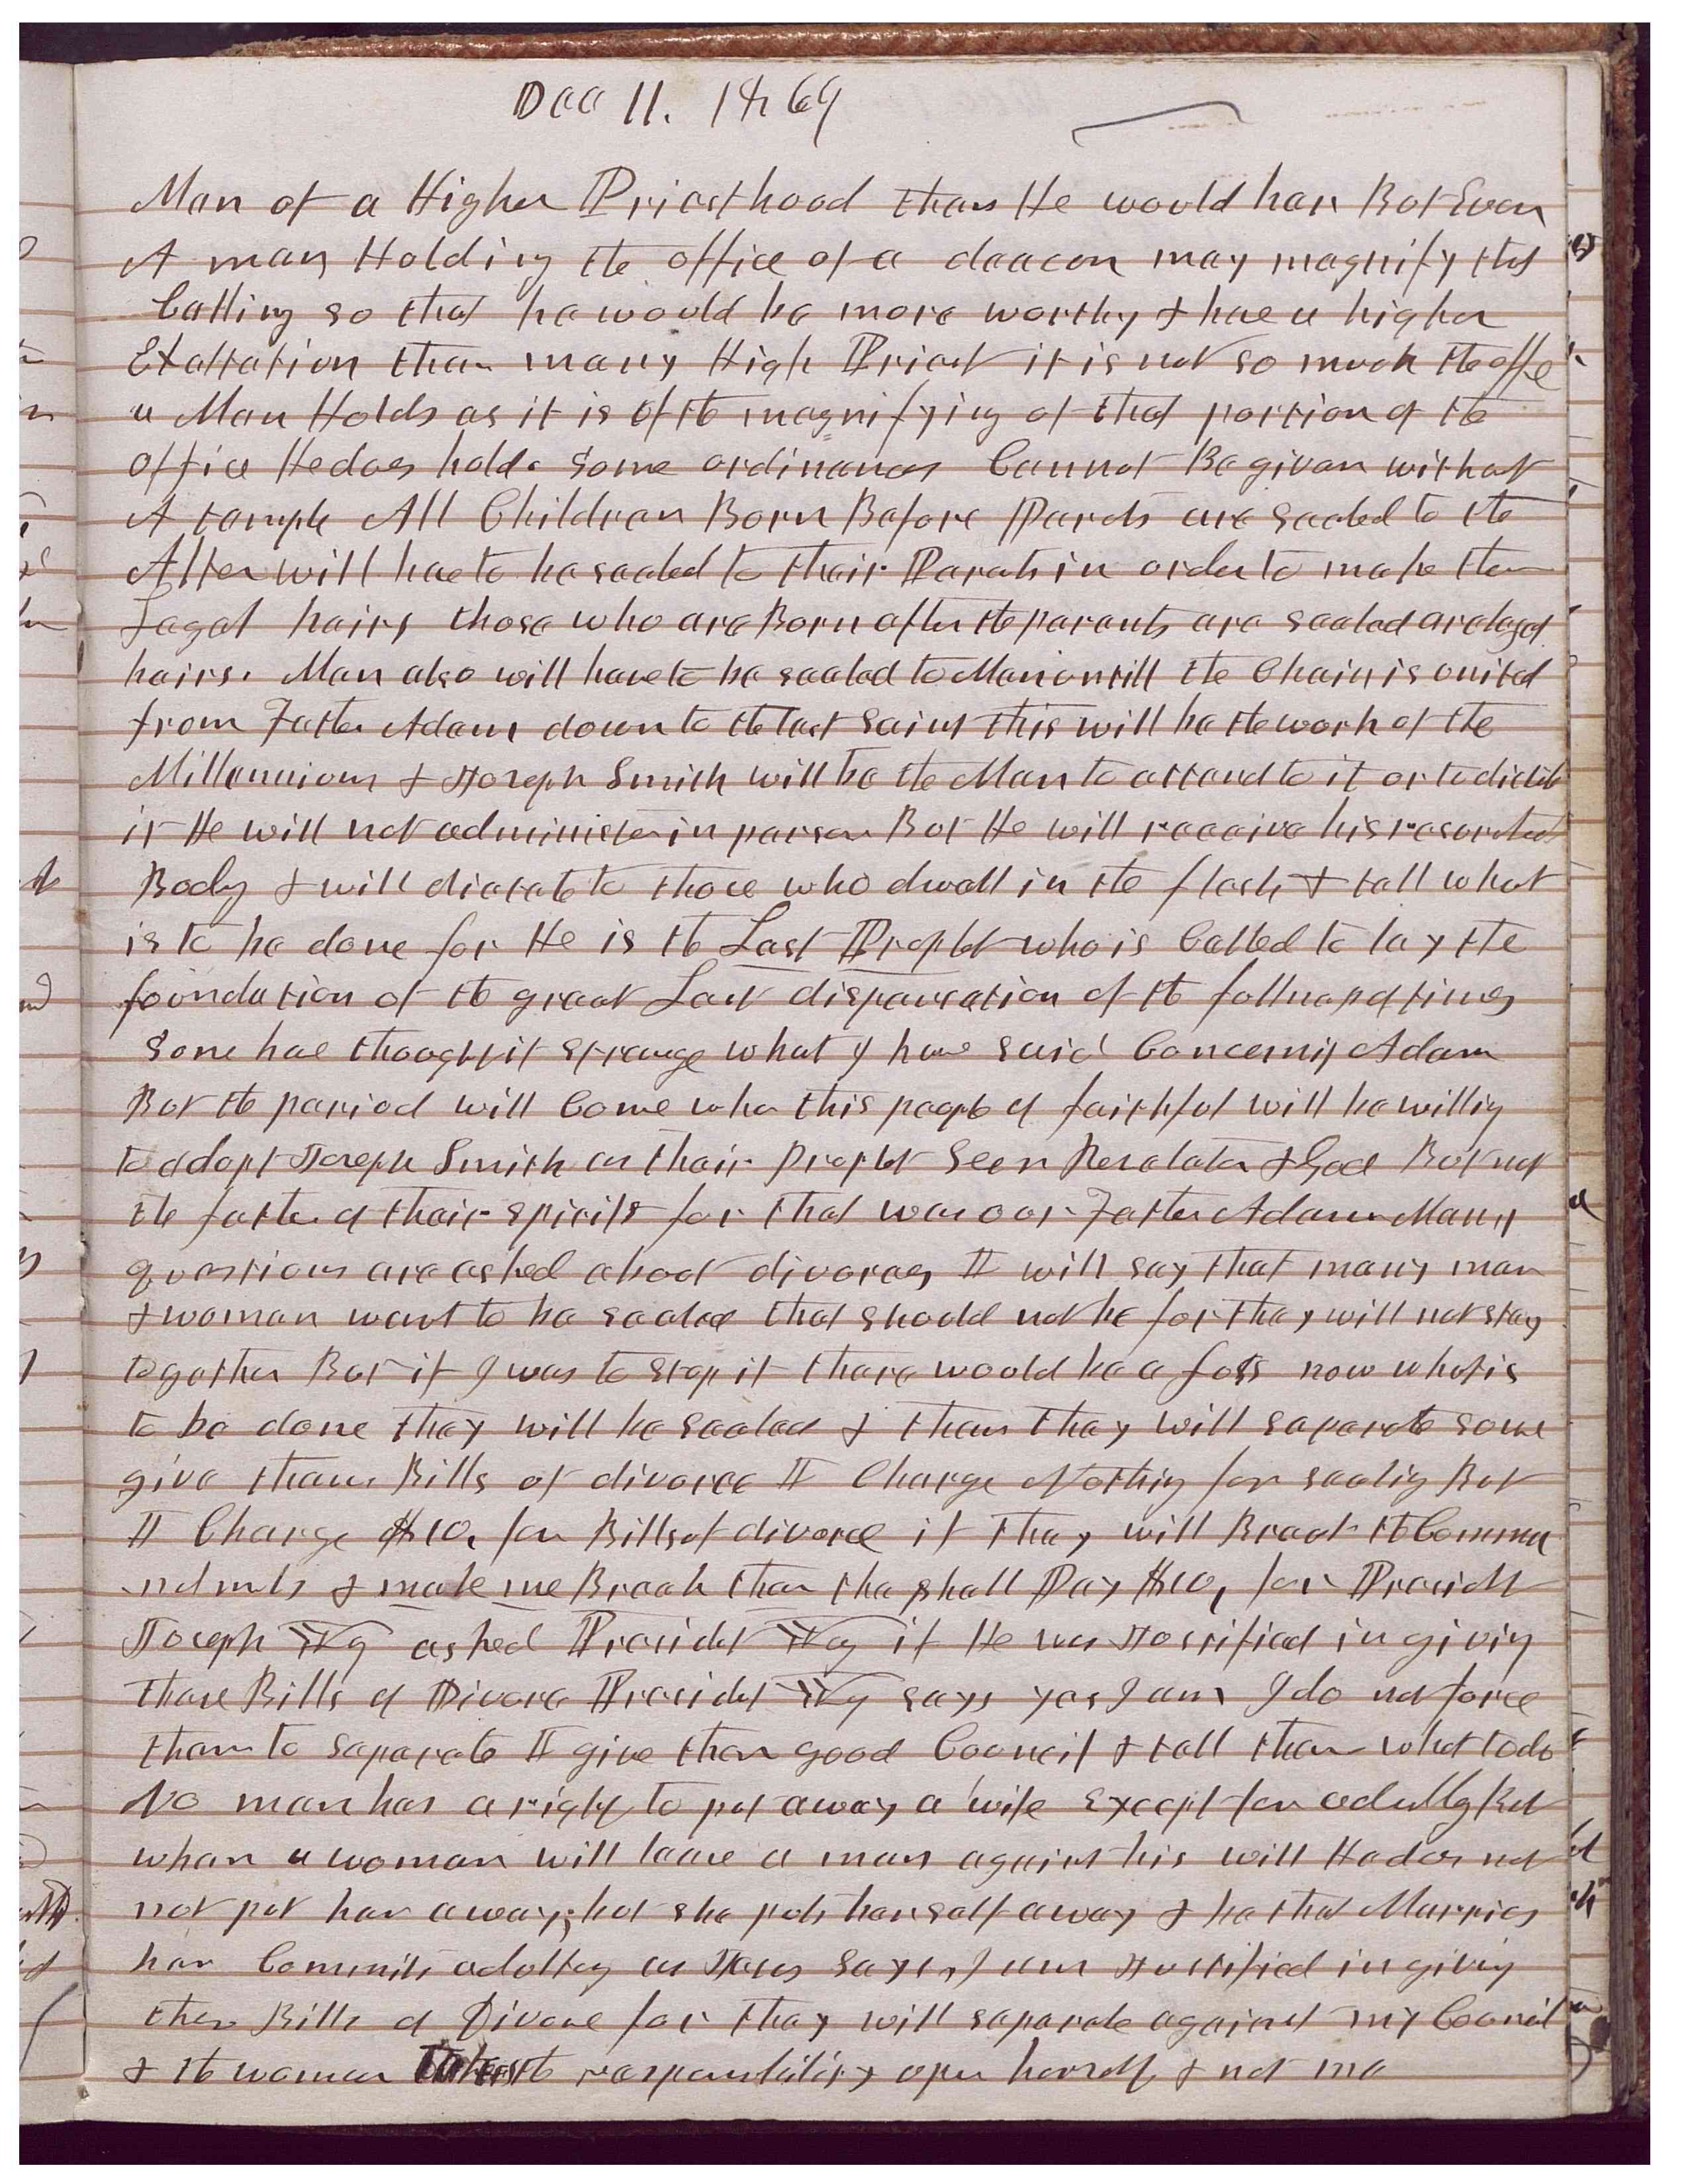 Dec 11. 1869
Man of a Higher Priesthood than He would have But Even
A man Holding the office of a deacon may magnify that
Calling so that he would be more worthy & have a higher
Exaltation than many High Priest it is not so much the offce
a Man Holds as it is of the magnifying of that portion of the
office He does hold. Some ordinances Cannot Be given without
A temple All Children Born Before Parets are sealed to the
Alter will have to be sealed to their Parets in order to make them
Legal heirs those who are Born after the parents are sealed are legal
heirs. Man also will have to be sealed to Man untill the Chain is united
from Father Adam down to the last Saint this will be the work of the
Millennium & Joseph Smith will be the Man to attend to it or to dictate
it He will not administer in person But He will receive his resurected
Body & will dictate to those who dwell in the flesh & tell what
is to be done for He is the Last Prophet who is Called to lay the
foundation of the great Last dispensation of the fullness of times
Some have thought it strange what I have said Concernig Adam
But the period will Come when this people if faithful will be willig
to adopt Joseph Smith as their Prophet Seer Revelator & God But not
the father of their spirits for that was our Father Adam Many
questions are asked about divorces I will say that many men
& women want to be sealed that should not be for they will not stay
together But if I was to stop it there would be a fuss now what is
to be done they will be sealed & then they will separate some
give them Bills of divorce I Charge Nothig for sealig But
I Charge $10. for Bills of divorce if they will Break the Comma
ndmets & make me Break them the shall Pay $10, for Presidt
Joseph Yg asked Presidet Yg if He was Justified in givig
those Bills of Divorce Presidet Yg says yes I am I do not force
them to separate I give them good Councel & tell them what to do
No man has a right to put away a wife Except for adultry But
when a woman will leave a man against his will He does not
not put her away, but she puts herself away & he that Marries
her Commits adultry as Jesus says, I am Justified in givig
them Bills of Divorce for they will separate against my Council
& the woman takes the responsibility upon herself & not me